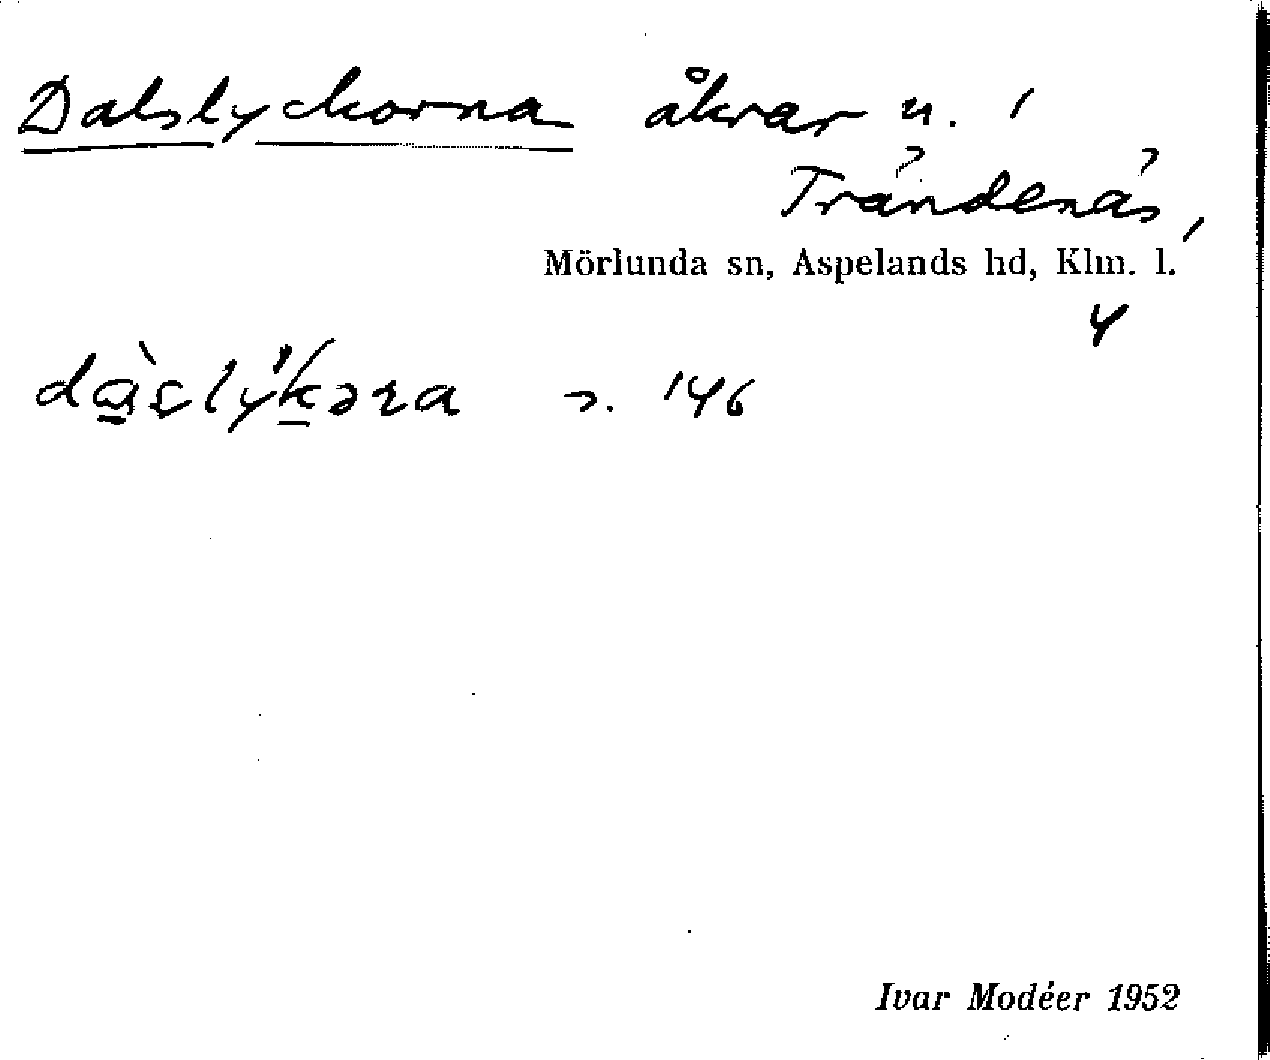 Dalslyckorna åkrar u. 1
Trändenäs,
Mörlunda sn, Aspelands hd, Klm. l.
4
s. 146
Ivar Modéer 1952